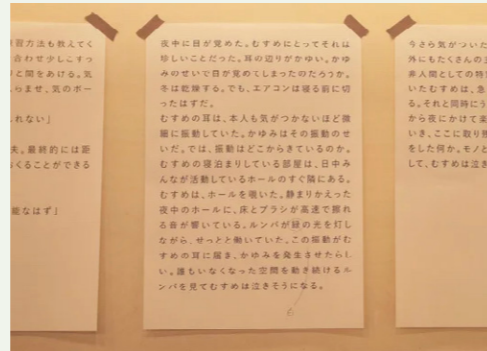 習方法も教えてく
合わせ少しこすっ
と間をあける。気
らませ、気のボー
れない」
夫。最終的には距
くることができる
能なはず」
夜中に目が覚めた。むすめにとってそれは
珍しいことだった。耳の辺りがかゆい。かゆ
みのせいで目が覚めてしまったのだろうか。
冬は乾燥する。でも、エアコンは寝る前に切
ったはずだ。
むすめの耳は、本人も気がつかないほど微
細に振動していた。かゆみはその振動のせ
いだ。では、振動はどこからきているのか。
むすめの寝泊まりしている部屋は、日中み
んなが活動しているホールのすぐ隣にある。
むすめは、ホールを覗いた。静まりかえった
夜中のホールに、床とブラシが高速で擦れ
る音が響いている。ルンバが緑の光を灯し
ながら、せっせと働いていた。この振動がむ
すめの耳に届き、かゆみを発生させたらし
い。誰もいなくなった空間を動き続けるル
ンバを見てむすめは泣きそうになる。
今さら気がついた
外にもたくさんの
非人間としての特
いたむすめは、急
る。それと同時にう
から夜にかけて楽
いき、ここに取り残
をした何か。モノと
して、むすめは泣き